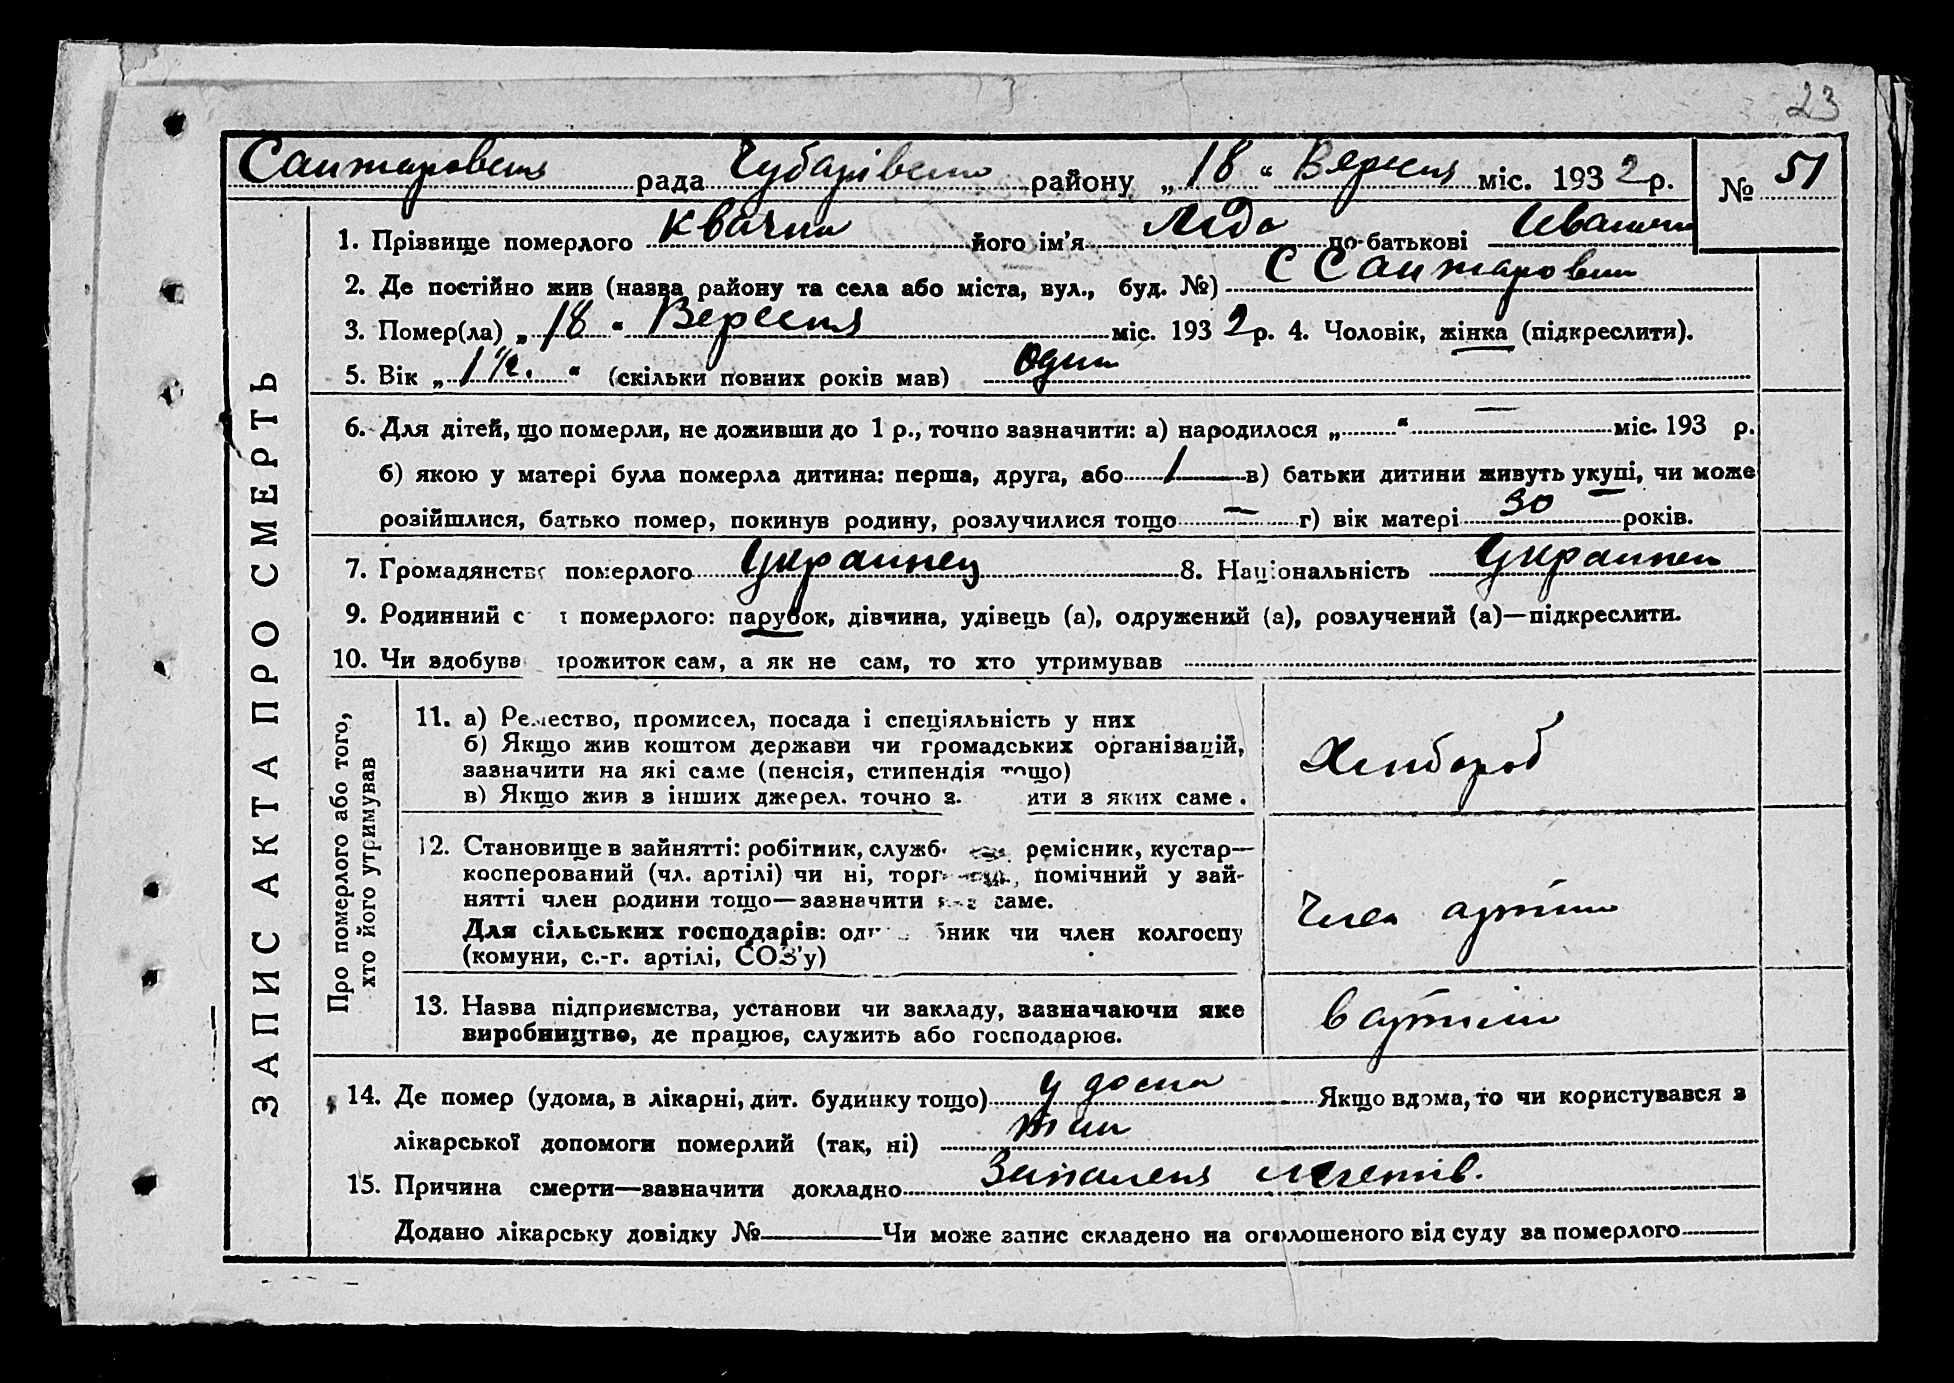 23
Санжаровська рада Чубарівського району „18“ Вересня міс. 1932 р. № 51
1. Прізвище померлого Квачка його ім’я Ліда по-батькові Ивановн
2. Де постійно жив (назва району та села або міста, вул., буд. №) С Санжаровка
3. Помер(ла) „18“ Вересня міс. 1932 р. 4. Чоловік, жінка (підкреслити).
5. Вік „1 1/2.“ (скільки повних років мав) один
6. Для дітей, що померли, не доживши до 1 р., точно зазначити: а) народилося „ “ — міс. 193 р.
б) якою у матері була померла дитина: перша, друга, або 1 в) батьки дитини живуть укупі, чи може
розійшлися, батько помер, покинув родину, розлучилися тощо — г) вік матері 30 років.
7. Громадянство померлого Украинец 8. Національність Украинец
9. Родинний с і померлого: парубок, дівчина, удівець (а), одружений (а), розлучений (а)—підкреслити.
10. Чи здобува прожиток сам, а як не сам, то хто утримував
ЗАПИС АКТА ПРО СМЕРТЬ
Про померлого або того,
хто його утримував
11. а) Ремество, промисел, посада і спеціяльність у них
б) Якщо жив коштом держави чи громадських організацій,
зазначити на які саме (пенсія, стипендія тощо)
в) Якщо жив з інших джерел. точно з. ити з яких саме.
Хлибороб
12. Становище в зайнятті: робітник, служб ремісник, кустар—
косперований (чл. артілі) чи ні, торг помічний у зай-
нятті член родини тощо—зазначити саме.
Для сільських господарів: од бник чи член колгоспу
(комуни, с.-г. артілі, СОЗ’у)
Член артили
13. Назва підприємства, установи чи закладу, зазначаючи яке
виробництво, де працює, служить або господарює.
в артили
14. Де помер (удома, в лікарні, дит. будинку тощо) у дома Якщо вдома, то чи користувався з
лікарської допомоги померлий (так, ні) так
15. Причина смерти—зазначити докладно Запаленя легенів.
Додано лікарську довідку № Чи може запис складено на оголошеного від суду за померлого